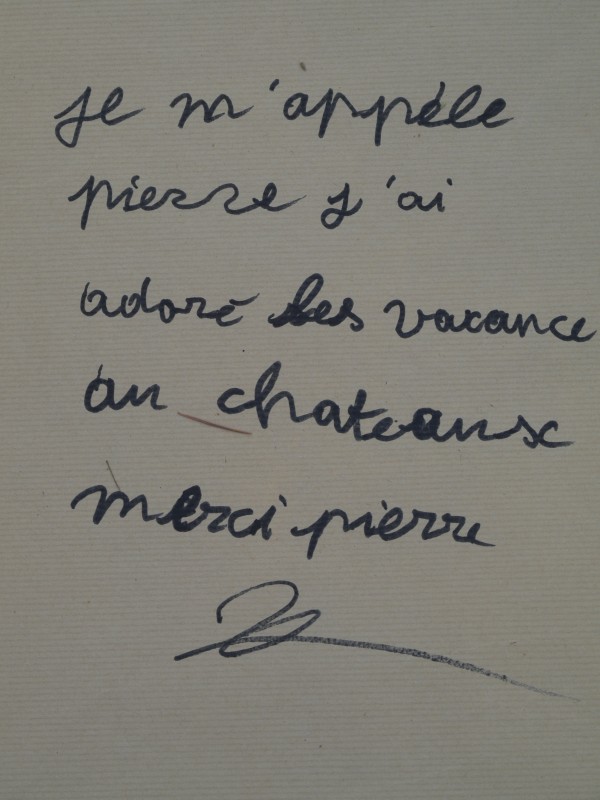 je m'appéle
pierre j'ai
adoré les vacance
au chateaux
merci pierre